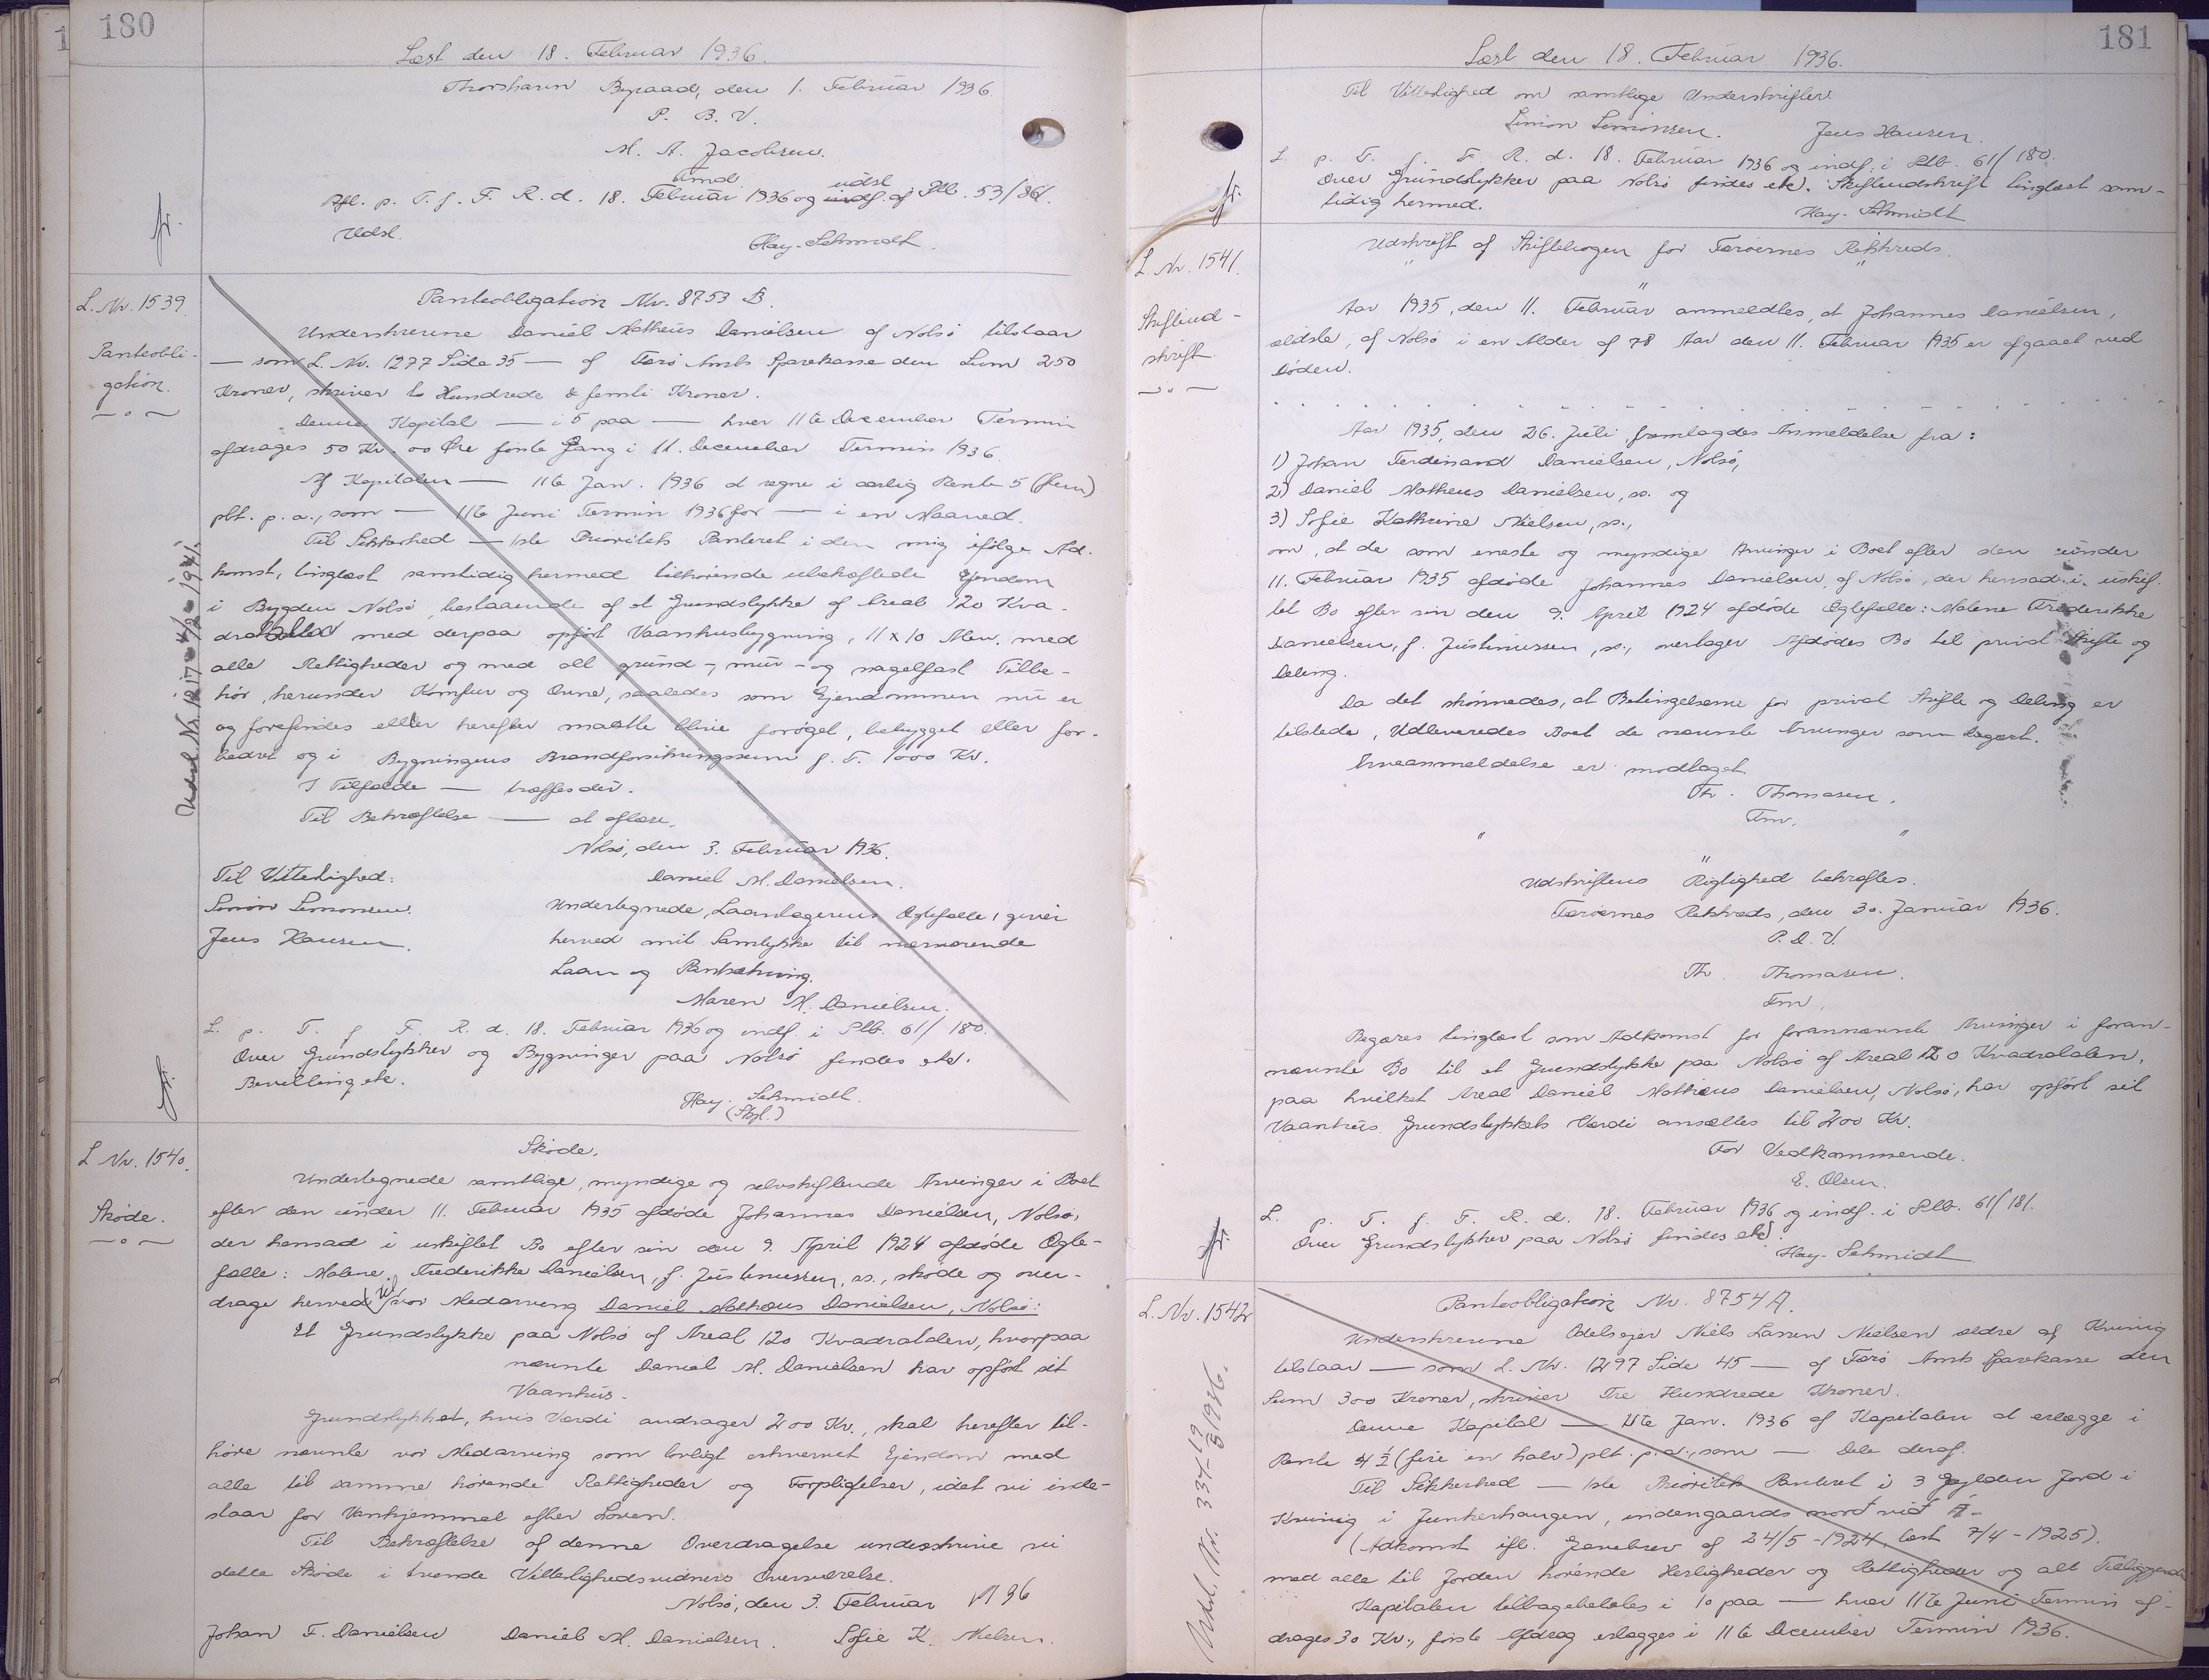 180
Læst den 18. Februar 1936.
Thorshavn Byraad, den 1. Februar 1936
P. B. V.
M. A. Jacobsen.
fmd.
Afl. p. T. f. F. R. d. 18. Februar 1936 og udsl. af Plb. 53/361.
Udsl.
Hay-Schmidt.
L. Nr. 1539.
Panteobli-
gation.
Udsl Nr. 1217 - 4/2 - 1941.
Panteobligation Nr. 8753 B.
Underskrevne Daniel Mathæus Danielsen af Nolsø tilstaar
— som L. Nr. 1277 Side 35 — af Færø Amts Sparekasse den Sum 250
Kroner, skriver to Hundrede & femti Kroner.
Denne Kapital — i 5 paa — hver 11te December Termin
afdrages 50 Kr. 00 Øre første Gang i 11. December Termin 1936.
Af Kapitalen — 11te Jan. 1936 at regne i aarlig Rente 5 (fem)
pCt. p. a., som — 11te Juni Termin 1936 for — i en Maaned.
Til Sikkerhed — 1ste Prioritets Panteret i den mig ifølge Ad-
komst, tinglæst samtidig hermed tilhørende ubehæftede Ejendom
i Bygden Nolsø, bestaaende af et Grundstykke af Areal 120 Kva-
dratalen med derpaa opført Vaanhusbygning, 11 x 10 Alen, med
alle Rettigheder og med alt grund-, mur- og nagelfast Tilbe-
hør, herunder Komfur og Ovne, saaledes som Ejendommen nu er
og forefindes eller herefter maatte blive forøget, bebygget eller for-
bedret og i Bygningens Brandforsikringssum f. T. 1000 Kr.
I Tilfælde — træffes der.
Til Bekræftelse — at aflæse.
Nolsø, den 3. Februar 1936.
Til Vitterlighed:
Daniel M. Danielsen.
Simon Simonsen.
Undertegnede, Laantagerens Ægtefælle, giver
Jens Hansen.
herved mit Samtykke til nærværende
Laan og Pantsætning.
Maren M. Danielsen.
L. p. T. f. F. R. d. 18. Februar 1936 og indf. i Plb. 61/180.
Over Grundstykker og Bygninger paa Nolsø findes etc.
Bevilling etc.
Hay-Schmidt.
L Nr. 1540.
Skøde.
Skøde.
Undertegnede samtlige, myndige og selvskiftende Arvinger i Boet
efter den under 11. Februar 1935 afdøde Johannes Danielsen, Nolsø,
der hensad i uskiftet Bo efter sin den 9. April 1924 afdøde Ægte-
fælle: Malene Frederikke Danielsen, f. Justinussen, ss., skøde og over-
drage herved til vor Medarving Daniel Mathæus Danielsen, Nolsø:
Et Grundstykke paa Nolsø af Areal 120 Kvadratalen, hvorpaa
nævnte Daniel M. Danielsen har opført sit
Vaanhus.
Grundstykket, hvis Værdi andrager 200 Kr., skal herefter til-
høre nævnte vor Medarving som lovligt erhvervet Ejendom med
alle til samme hørende Rettigheder og Forpligtelser, idet vi inde-
staar for Vanhjemmel efter Loven.
Til Bekræftelse af denne Overdragelse underskrive vi
dette Skøde i tvende Vitterlighedsvidners Overværelse.
Nolsø, den 3. Februar 1936
Johan F. Danielsen Daniel M. Danielsen. Sofie K. Nielsen.
181
Læst den 18. Februar 1936.
Til Vitterlighed om samtlige Underskrifter.
Simon Simonsen. Jens Hansen.
L p. T. f. F. R. d. 18. Februar 1936 og indf. i Plb. 61/180.
Over Grundstykker paa Nolsø findes etc. Skifteudskrift tinglæst sam-
tidig hermed.
Hay-Schmidt
L. Nr. 1541.
Skifteud-
skrift
Udskrift af Skiftebogen for Færøernes Retskreds.
Aar 1935, den 11. Februar anmeldtes, at Johannes Danielsen,
ældste, af Nolsø i en Alder af 78 Aar den 11. Februar 1935 er afgaaet ved
Døden.
Aar 1935, den 26. Juli fremlagdes Anmeldelse fra:
1) Johan Ferdinand Danielsen, Nolsø,
2) Daniel Mathæus Danielsen, ss. og
3) Sofie Kathrine Nielsen, ss.,
om, at de som eneste og myndige Arvinger i Boet efter den under
11. Februar 1935 afdøde Johannes Danielsen, af Nolsø, der hensad i uskif-
tet Bo efter sin den 9. April 1924 afdøde Ægtefælle: Malene Frederikke
Danielsen, f. Justinussen, ss., overtager Afdødes Bo til privat Skifte og
Deling.
Da det skønnedes, at Betingelserne for privat Skifte og Deling er
tilstede, Udleveredes Boet de nævnte Arvinger som begært.
Arveanmeldelse er modtaget.
Th. Thomasen.
Fm.
Udskriftens Rigtighed bekræftes.
Færøernes Retskreds, den 30. Januar 1936.
P. D. V.
Th. Thomasen.
Fm.
Begæres tinglæst som Adkomst for forannævnte Arvinger i foran-
nævnte Bo til et Grundstykke paa Nolsø af Areal 120 Kvadratalen,
paa hvilket Areal Daniel Mathæus Danielsen, Nolsø, har opført sit
Vaanhus. Grundstykkets Værdi ansættes til 200 Kr.
For Vedkommende.
E. Olsen.
L. p. T. f. F. R. d. 18. Februar 1936 og indf. i Plb. 61/181.
Over Grundstykker paa Nolsø findes etc.
Hay-Schmidt
L. Nr. 1542
Udsl. Nr. 334 - 19/5 1936.
Panteobligation Nr. 8754 A.
Underskrevne Odelsejer Niels Larsen Nielsen ældre af Kvivig
tilstaar — som L. Nr. 1297 Side 45 — af Færø Amts Sparekasse den
Sum 300 Kroner, skriver Tre Hundrede Kroner.
Denne Kapital — 11te Jan. 1936 af Kapitalen at erlægge i
Rente 4 1/2 (fire en halv) pCt. p. a., som — Dele deraf.
Til Sikkerhed — 1ste Prioritets Panteret i 3 Gylden Jord i
Kvivig i Junkerhaugen, indengaards norð við Á.-
(Adkomst ifl. Gavebrev af 24/5 - 1924, læst 7/4 - 1925).
med alle til Jorden hørende Herligheder og Rettigheder og alt Tilliggende
Kapitalen tilbagebetales i 10 paa — hver 11te Juni Termin af-
drages 30 Kr., første Afdrag erlægges i 11te December Termin 1936.